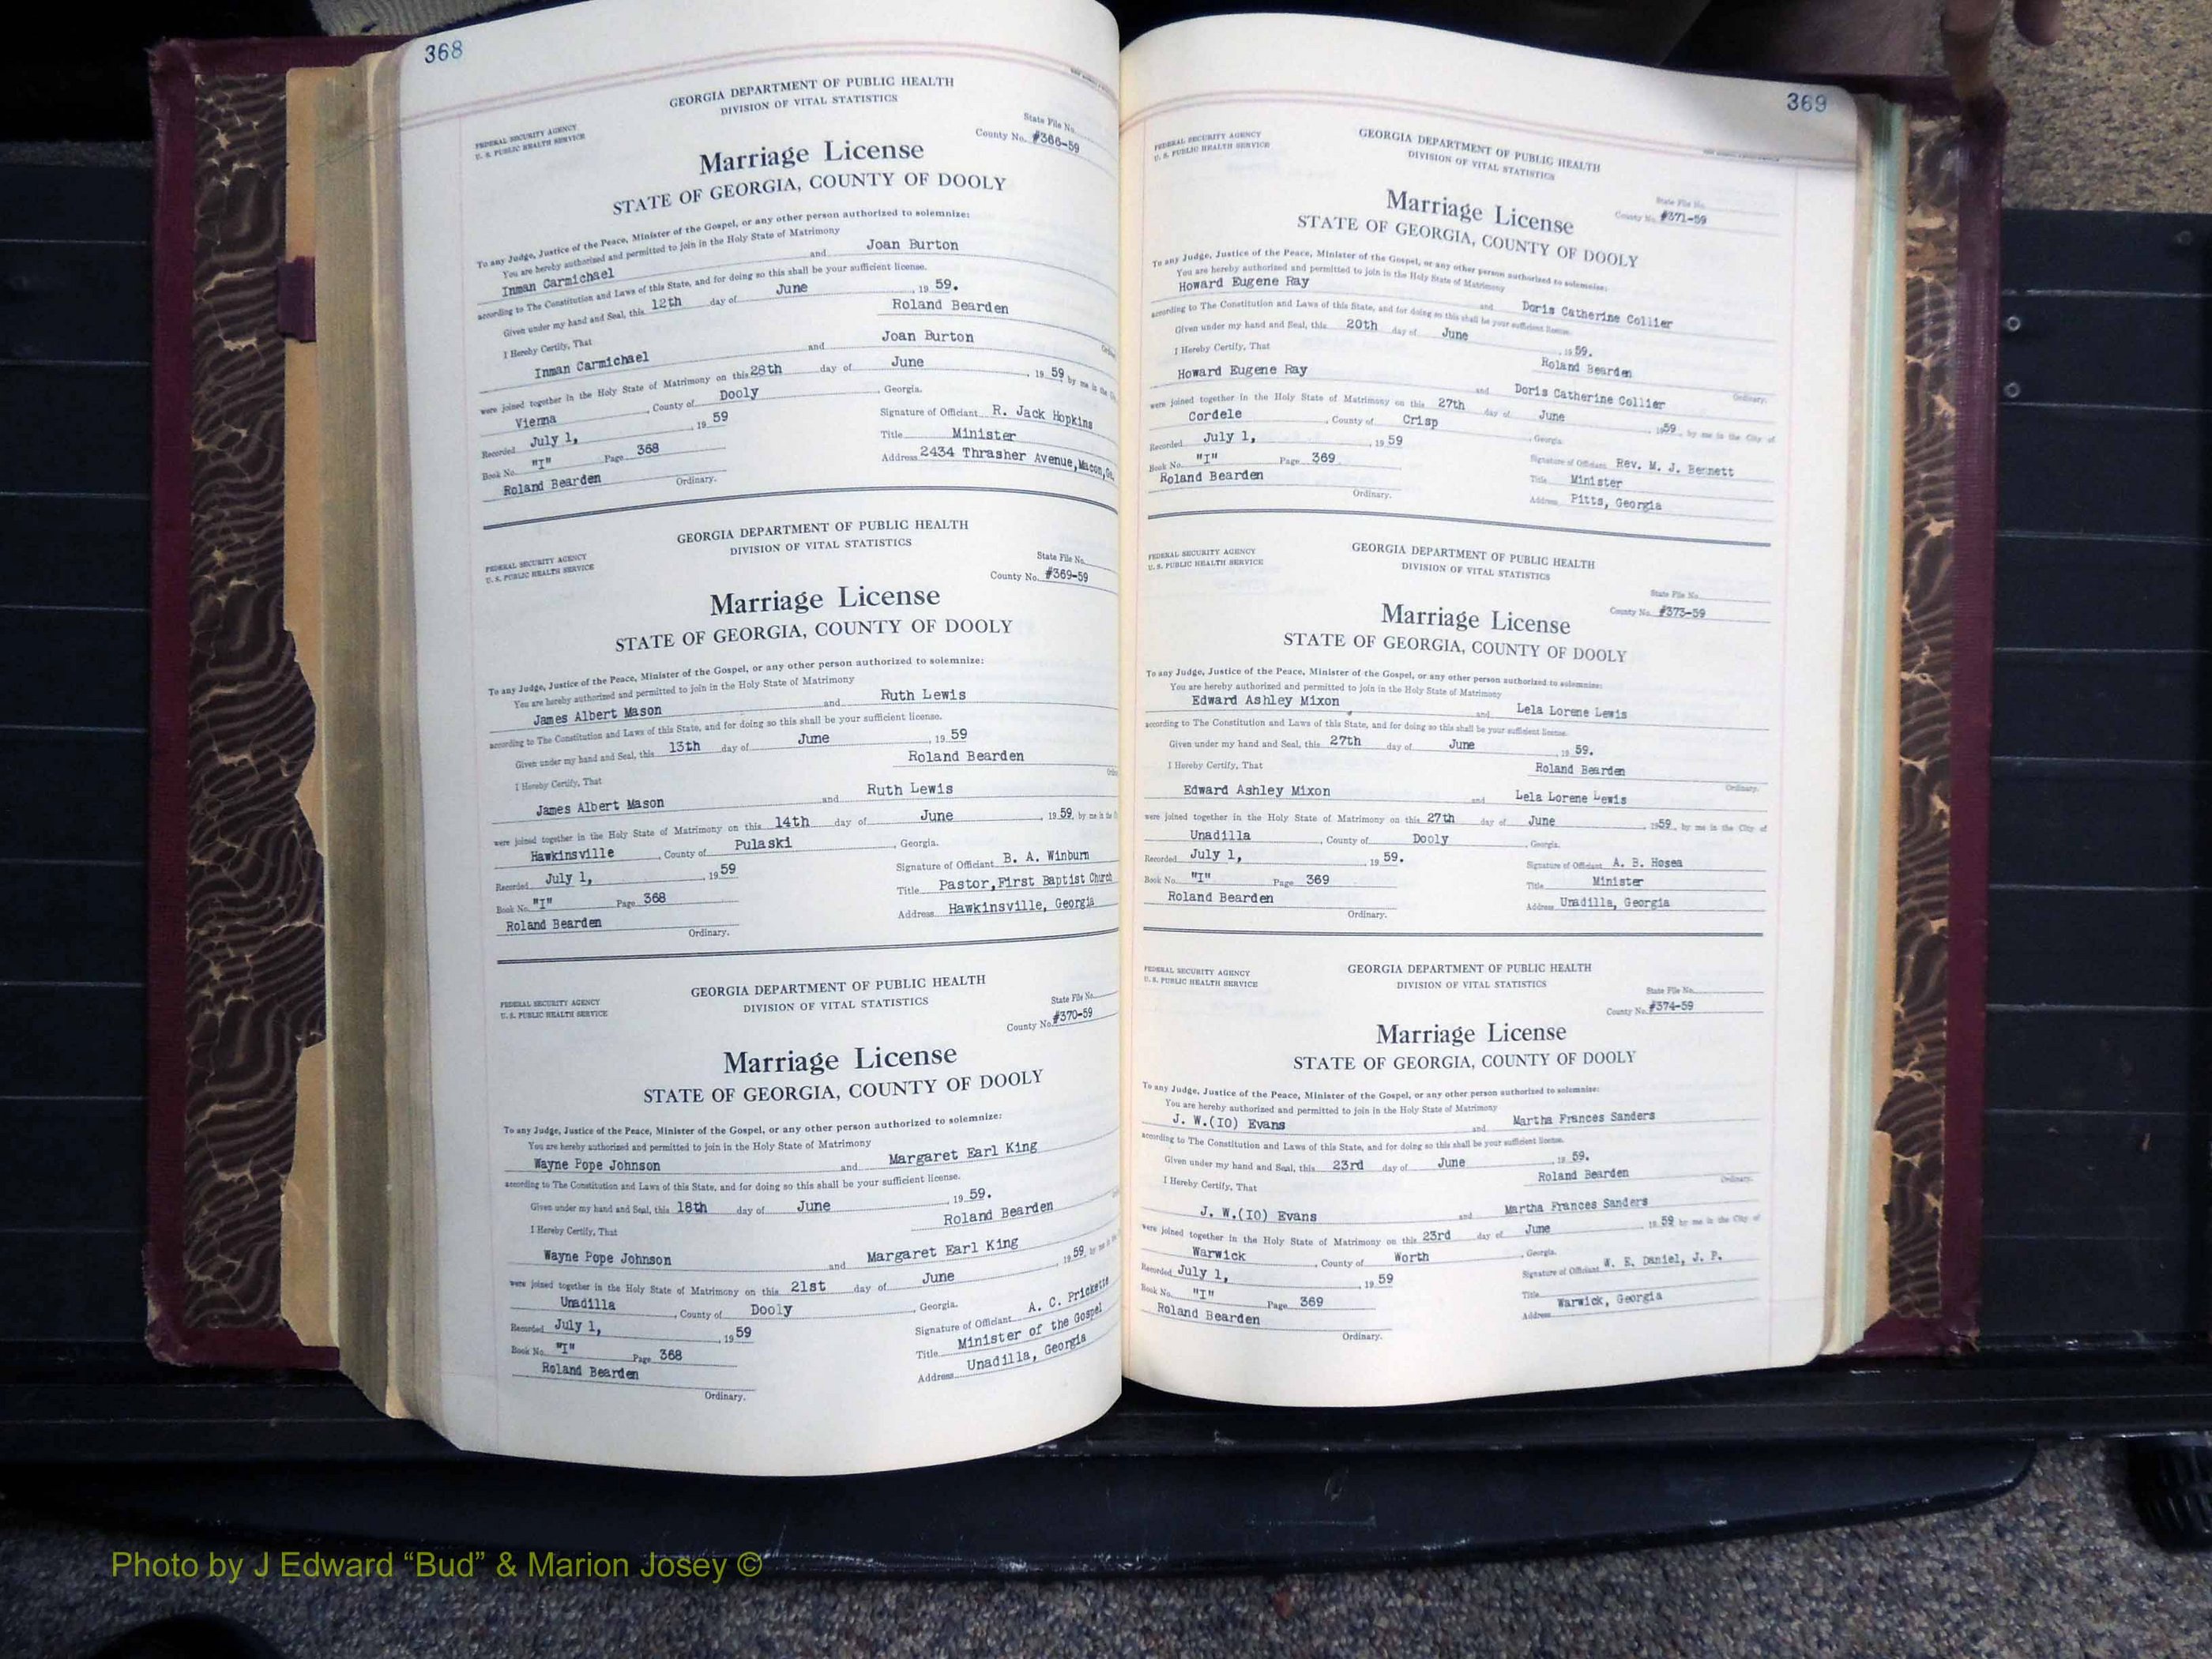 368
GEORGIA DEPARTMENT OF PUBLIC HEALTH
DIVISION OF VITAL STATISTICS
FEDERAL SECURITY AGENCY
U. S. PUBLIC HEALTH SERVICE
State File No.
County No. #366-59
Marriage License
STATE OF GEORGIA, COUNTY OF DOOLY
To any Judge, Justice of the Peace, Minister of the Gospel, or any other person authorized to solemnize:
You are hereby authorized and permitted to join in the Holy State of Matrimony
Inman Carmichael and Joan Burton
according to The Constitution and Laws of this State, and for doing so this shall be your sufficient license.
Given under my hand and Seal, this 12th day of June, 19 59.
Roland Bearden
I Hereby Certify, That
Inman Carmichael and Joan Burton
were joined together in the Holy State of Matrimony on this 28th day of June, 19 59 by me in the
Vienna, County of Dooly, Georgia.
Recorded July 1, 19 59
Signature of Officiant R. Jack Hopkins
Book No. "I" Page 368
Title Minister
Roland Bearden
Address 2434 Thrasher Avenue, Macon, Ga.
Ordinary.
GEORGIA DEPARTMENT OF PUBLIC HEALTH
DIVISION OF VITAL STATISTICS
FEDERAL SECURITY AGENCY
U. S. PUBLIC HEALTH SERVICE
State File No.
County No. #369-59
Marriage License
STATE OF GEORGIA, COUNTY OF DOOLY
To any Judge, Justice of the Peace, Minister of the Gospel, or any other person authorized to solemnize:
You are hereby authorized and permitted to join in the Holy State of Matrimony
James Albert Mason and Ruth Lewis
according to The Constitution and Laws of this State, and for doing so this shall be your sufficient license.
Given under my hand and Seal, this 13th day of June, 19 59
Roland Bearden
I Hereby Certify, That
James Albert Mason and Ruth Lewis
were joined together in the Holy State of Matrimony on this 14th day of June, 19 59, by me in the
Hawkinsville, County of Pulaski, Georgia.
Recorded July 1, 19 59
Signature of Officiant B. A. Winburn
Book No. "I" Page 368
Title Pastor, First Baptist Church
Roland Bearden
Address Hawkinsville, Georgia
Ordinary.
GEORGIA DEPARTMENT OF PUBLIC HEALTH
DIVISION OF VITAL STATISTICS
FEDERAL SECURITY AGENCY
U. S. PUBLIC HEALTH SERVICE
State File No.
County No. #370-59
Marriage License
STATE OF GEORGIA, COUNTY OF DOOLY
To any Judge, Justice of the Peace, Minister of the Gospel, or any other person authorized to solemnize:
You are hereby authorized and permitted to join in the Holy State of Matrimony
Wayne Pope Johnson and Margaret Earl King
according to The Constitution and Laws of this State, and for doing so this shall be your sufficient license.
Given under my hand and Seal, this 18th day of June, 19 59.
Roland Bearden
I Hereby Certify, That
Wayne Pope Johnson and Margaret Earl King
were joined together in the Holy State of Matrimony on this 21st day of June, 19 59, by me in the
Unadilla, County of Dooly, Georgia.
Recorded July 1, 19 59
Signature of Officiant A. C. Prickette
Book No. "I" Page 368
Title Minister of the Gospel
Roland Bearden
Address Unadilla, Georgia
Ordinary.
369
GEORGIA DEPARTMENT OF PUBLIC HEALTH
DIVISION OF VITAL STATISTICS
FEDERAL SECURITY AGENCY
U. S. PUBLIC HEALTH SERVICE
State File No.
County No. #371-59
Marriage License
STATE OF GEORGIA, COUNTY OF DOOLY
To any Judge, Justice of the Peace, Minister of the Gospel, or any other person authorized to solemnize:
You are hereby authorized and permitted to join in the Holy State of Matrimony
Howard Eugene Ray and Doris Catherine Collier
according to The Constitution and Laws of this State, and for doing so this shall be your sufficient license.
Given under my hand and Seal, this 20th day of June, 19 59.
Roland Bearden
I Hereby Certify, That
Ordinary.
Howard Eugene Ray and Doris Catherine Collier
were joined together in the Holy State of Matrimony on this 27th day of June 1959, by me in the City of
Cordele, County of Crisp, Georgia.
Recorded July 1, 19 59
Signature of Officiant Rev. M. J. Bennett
Book No. "I" Page 369
Title Minister
Roland Bearden
Address Pitts, Georgia
Ordinary.
GEORGIA DEPARTMENT OF PUBLIC HEALTH
DIVISION OF VITAL STATISTICS
FEDERAL SECURITY AGENCY
U. S. PUBLIC HEALTH SERVICE
State File No.
County No. #373-59
Marriage License
STATE OF GEORGIA, COUNTY OF DOOLY
To any Judge, Justice of the Peace, Minister of the Gospel, or any other person authorized to solemnize:
You are hereby authorized and permitted to join in the Holy State of Matrimony
Edward Ashley Mixon and Lela Lorene Lewis
according to The Constitution and Laws of this State, and for doing so this shall be your sufficient license.
Given under my hand and Seal, this 27th day of June, 19 59.
Roland Bearden
I Hereby Certify, That
Ordinary.
Edward Ashley Mixon and Lela Lorene Lewis
were joined together in the Holy State of Matrimony on this 27th day of June, 1959, by me in the City of
Unadilla, County of Dooly, Georgia.
Recorded July 1, 19 59.
Signature of Officiant A. B. Hosea
Book No. "I" Page 369
Title Minister
Roland Bearden
Address Unadilla, Georgia
Ordinary.
GEORGIA DEPARTMENT OF PUBLIC HEALTH
DIVISION OF VITAL STATISTICS
FEDERAL SECURITY AGENCY
U. S. PUBLIC HEALTH SERVICE
State File No.
County No. #374-59
Marriage License
STATE OF GEORGIA, COUNTY OF DOOLY
To any Judge, Justice of the Peace, Minister of the Gospel, or any other person authorized to solemnize:
You are hereby authorized and permitted to join in the Holy State of Matrimony
J. W.(IO) Evans and Martha Frances Sanders
according to The Constitution and Laws of this State, and for doing so this shall be your sufficient license.
Given under my hand and Seal, this 23rd day of June, 19 59.
Roland Bearden
I Hereby Certify, That
Ordinary.
J. W.(IO) Evans and Martha Frances Sanders
were joined together in the Holy State of Matrimony on this 23rd day of June, 19 59 by me in the City of
Warwick, County of Worth, Georgia.
Recorded July 1, 19 59
Signature of Officiant W. E. Daniel, J. P.
Book No. "I" Page 369
Title
Roland Bearden
Address Warwick, Georgia
Ordinary.
Photo by J Edward “Bud” & Marion Josey ©